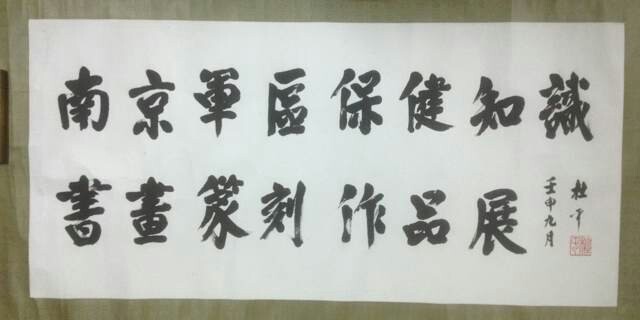 南京軍區保健知識
書畫篆刻作品展
壬申九月
杜平